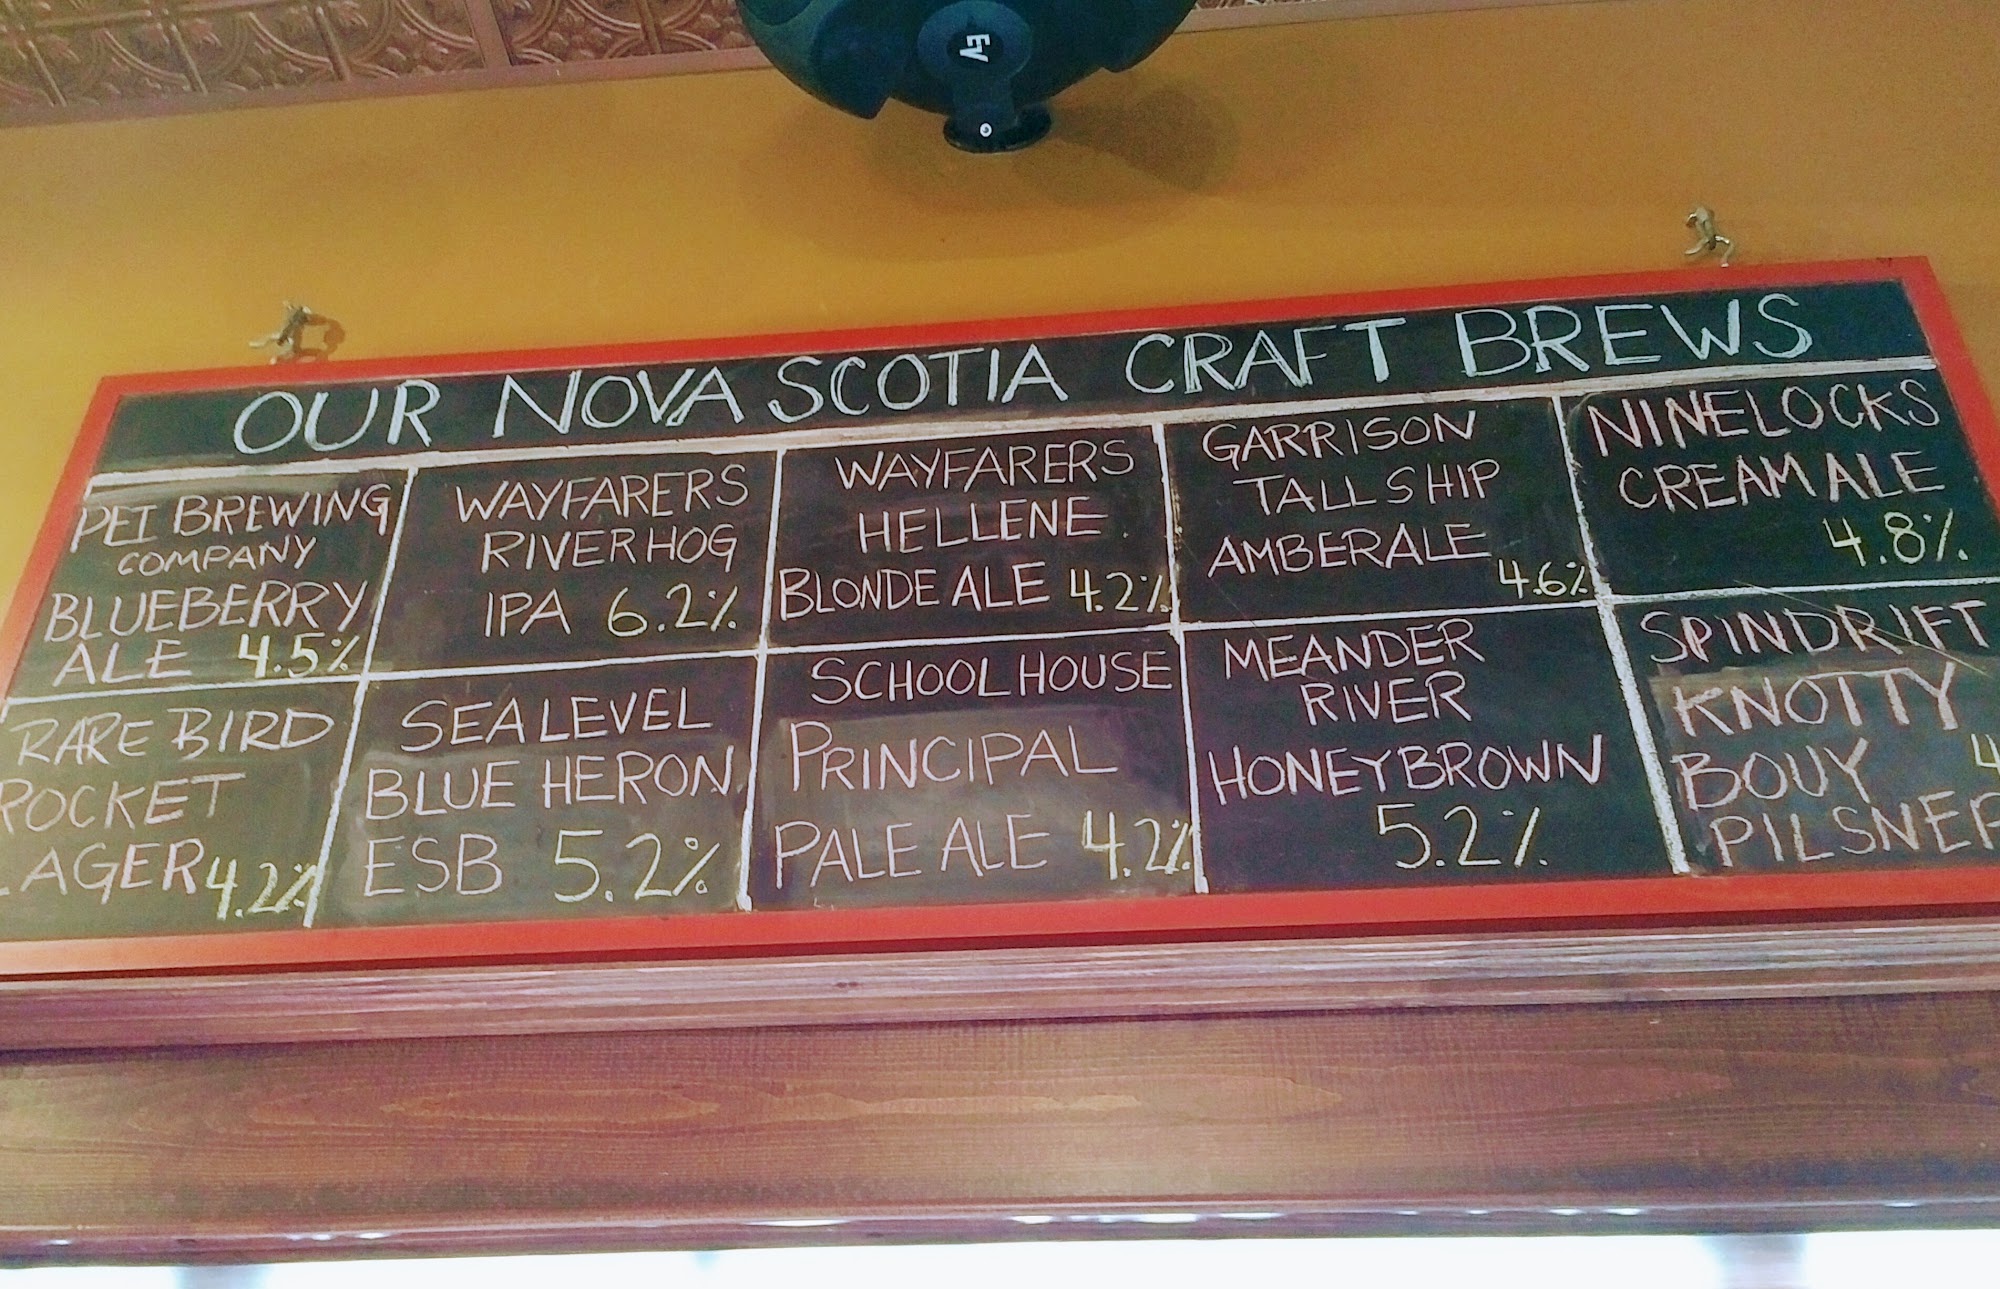 EV
OUR NOVA SCOTIA CRAFT BREWS
PEI BREWING
COMPANY
BLUEBERRY
ALE 4.5%
WAYFARERS
RIVERHOG
IPA 6.2%
WAYFARERS
HELLENE
BLONDE ALE 4.2%
GARRISON
TALL SHIP
AMBER ALE
4.6%
NINELOCKS
CREAM ALE
4.8%
RARE BIRD
ROCKET
LAGER 4.2%
SEA LEVEL
BLUE HERON
ESB 5.2%
SCHOOLHOUSE
PRINCIPAL
PALE ALE 4.2%
MEANDER
RIVER
HONEY BROWN
5.2%
SPINDRIFT
KNOTTY
BOUY 4
PILSNER